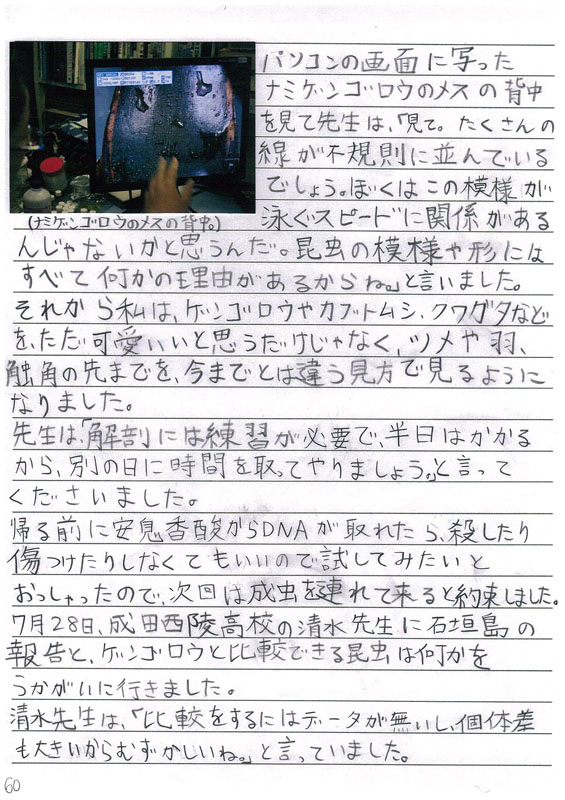 パソコンの画面に写った
ナミゲンゴロウのメスの背中
を見て先生は、「見て。たくさんの
線が不規則に並んでいる
でしょう。ぼくはこの模様が
(ナミゲンゴロウのメスの背中。)
泳ぐスピードに関係がある
んじゃないかと思うんだ。昆虫の模様や形には
すべて何かの理由があるからね。」と言いました。
それから私は、ゲンゴロウやカブトムシ、クワガタなど
を、ただ可愛いいと思うだけじゃなく、ツメや羽、
触角の先までを、今までとは違う見方で見るように
なりました。
先生は、「解剖には練習が必要で、半日はかかる
から、別の日に時間を取ってやりましょう。」と言って
くださいました。
帰る前に安息香酸からDNAが取れたら、殺したり
傷つけたりしなくてもいいので試してみたいと
おっしゃったので、次回は成虫を連れて来ると約束しました。
7月28日、成田西陵高校の清水先生に石垣島の
報告と、ゲンゴロウと比較できる昆虫は何かを
うかがいに行きました。
清水先生は、「比較をするにはデータが無いし、個体差
も大きいからむずかしいね。」と言っていました。
60